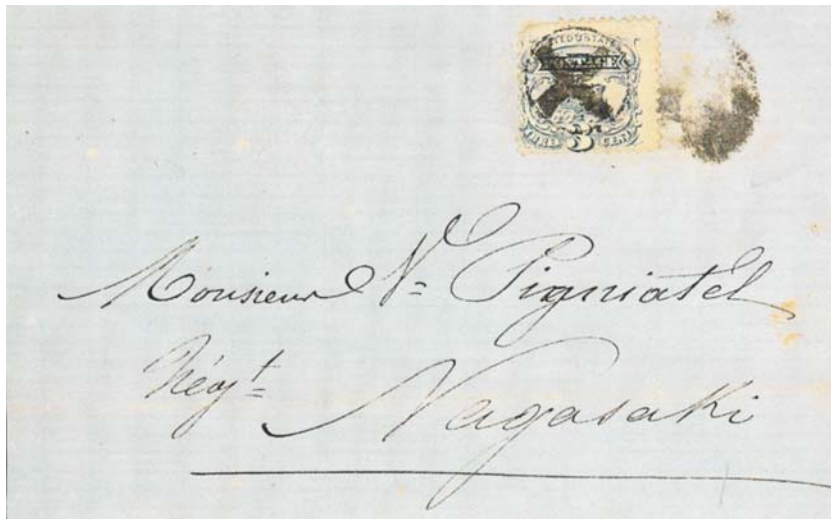 UNITED STATES
POSTAGE
3
THREE CENTS
Monsieur V= Pigniatel
Négt=
Nagasaki